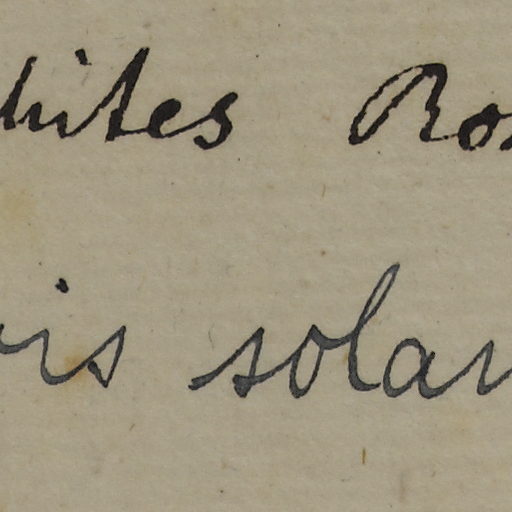 hites Ros
is solan